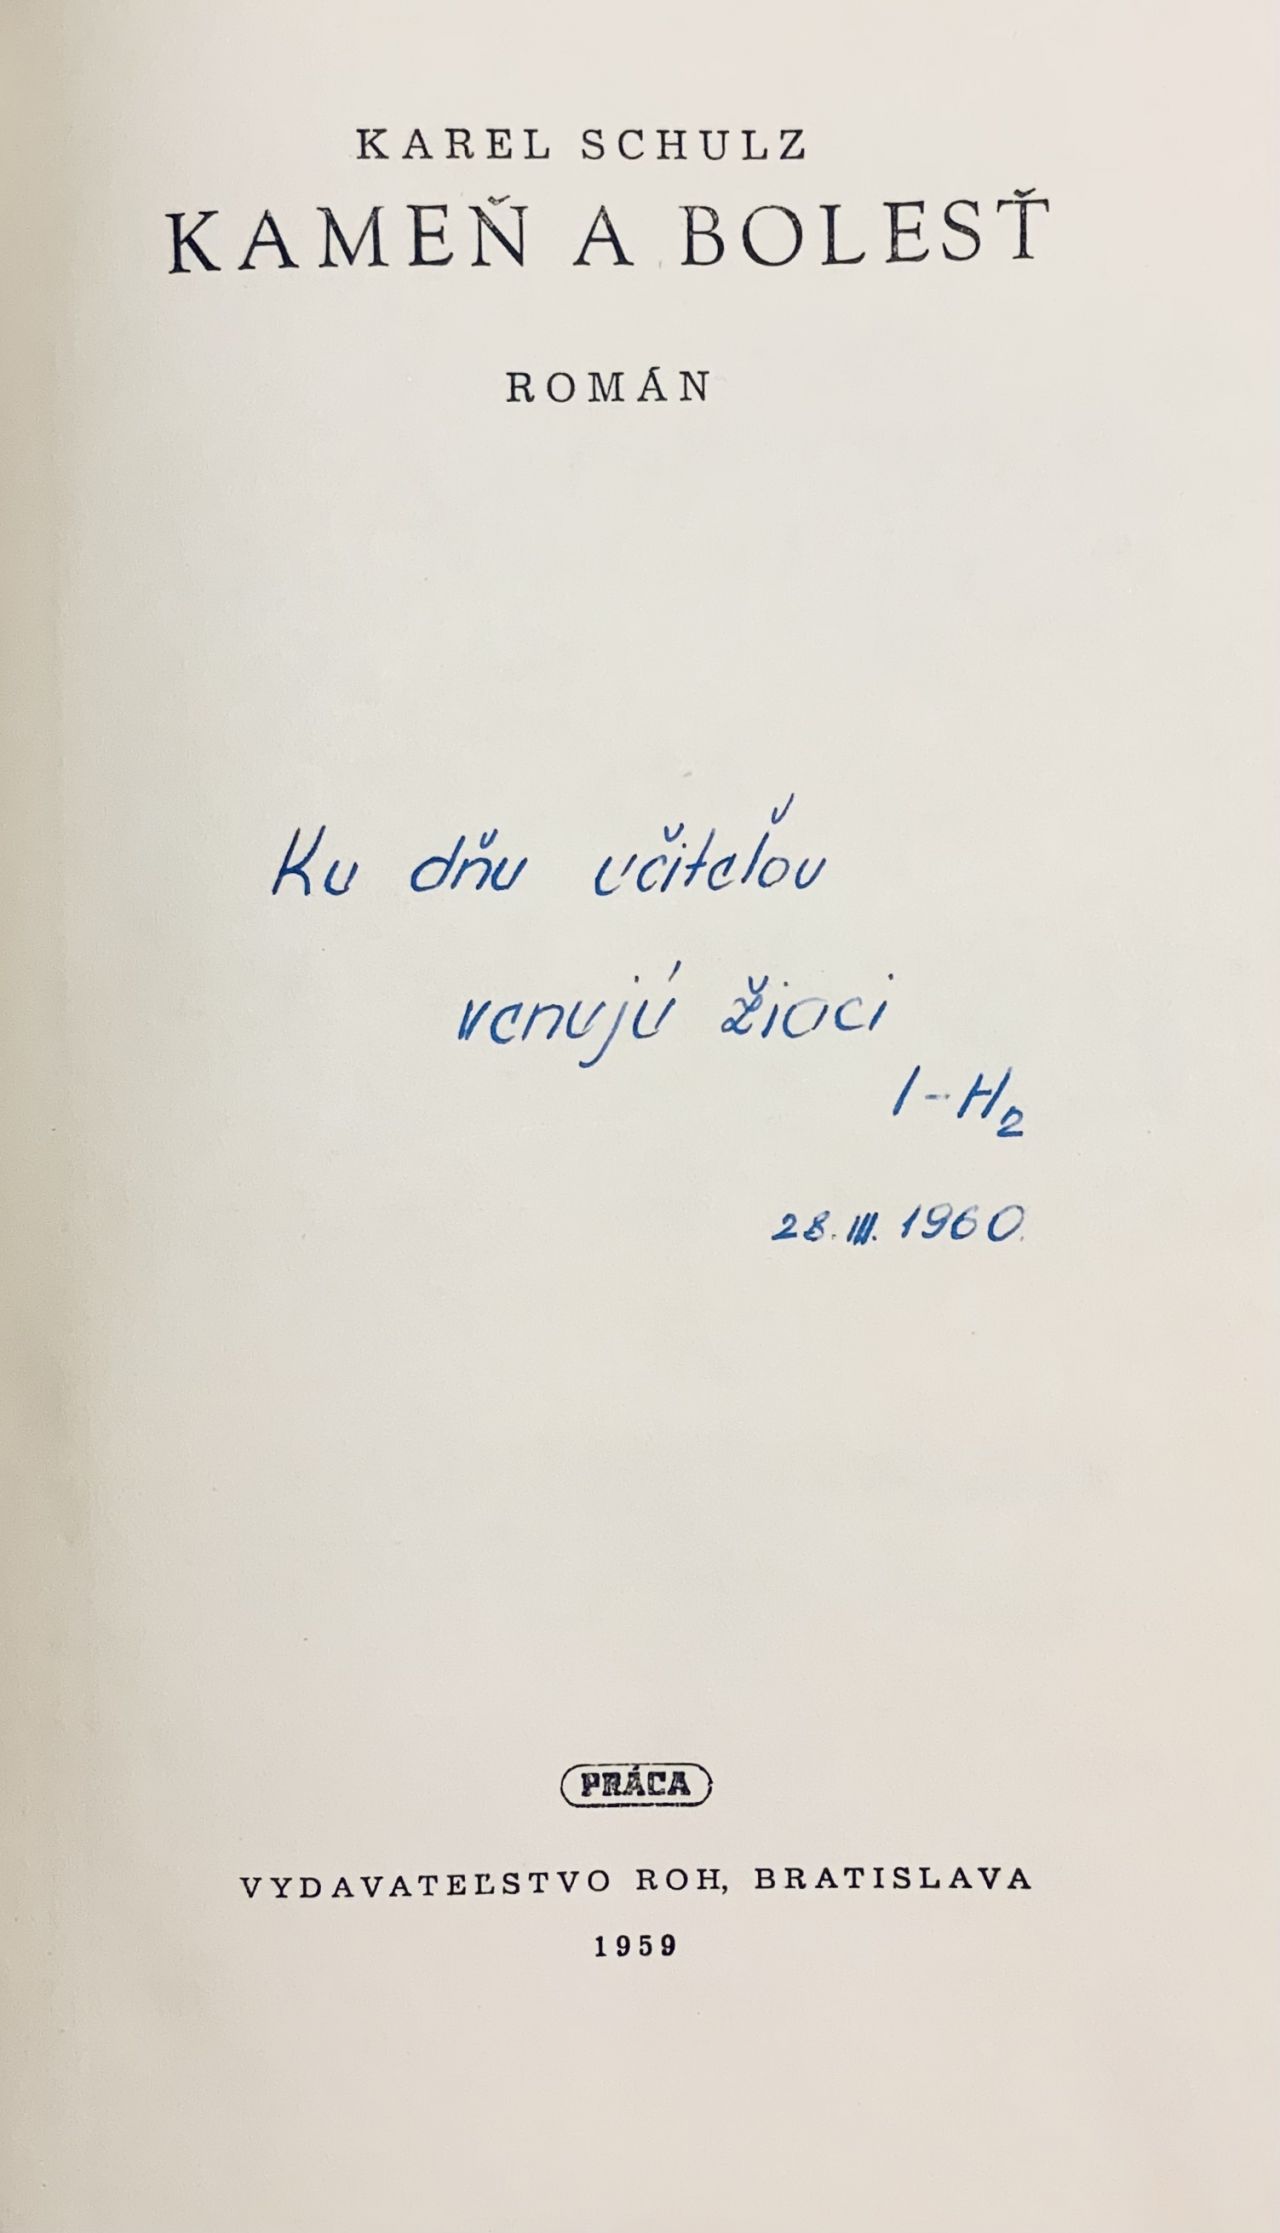 KAREL SCHULZ
KAMEŇ A BOLESŤ
ROMÁN
Ku dňu učiteľov
venujú žiaci
I-H2
28. III. 1960.
PRÁCA
VYDAVATEĽSTVO ROH, BRATISLAVA
1959